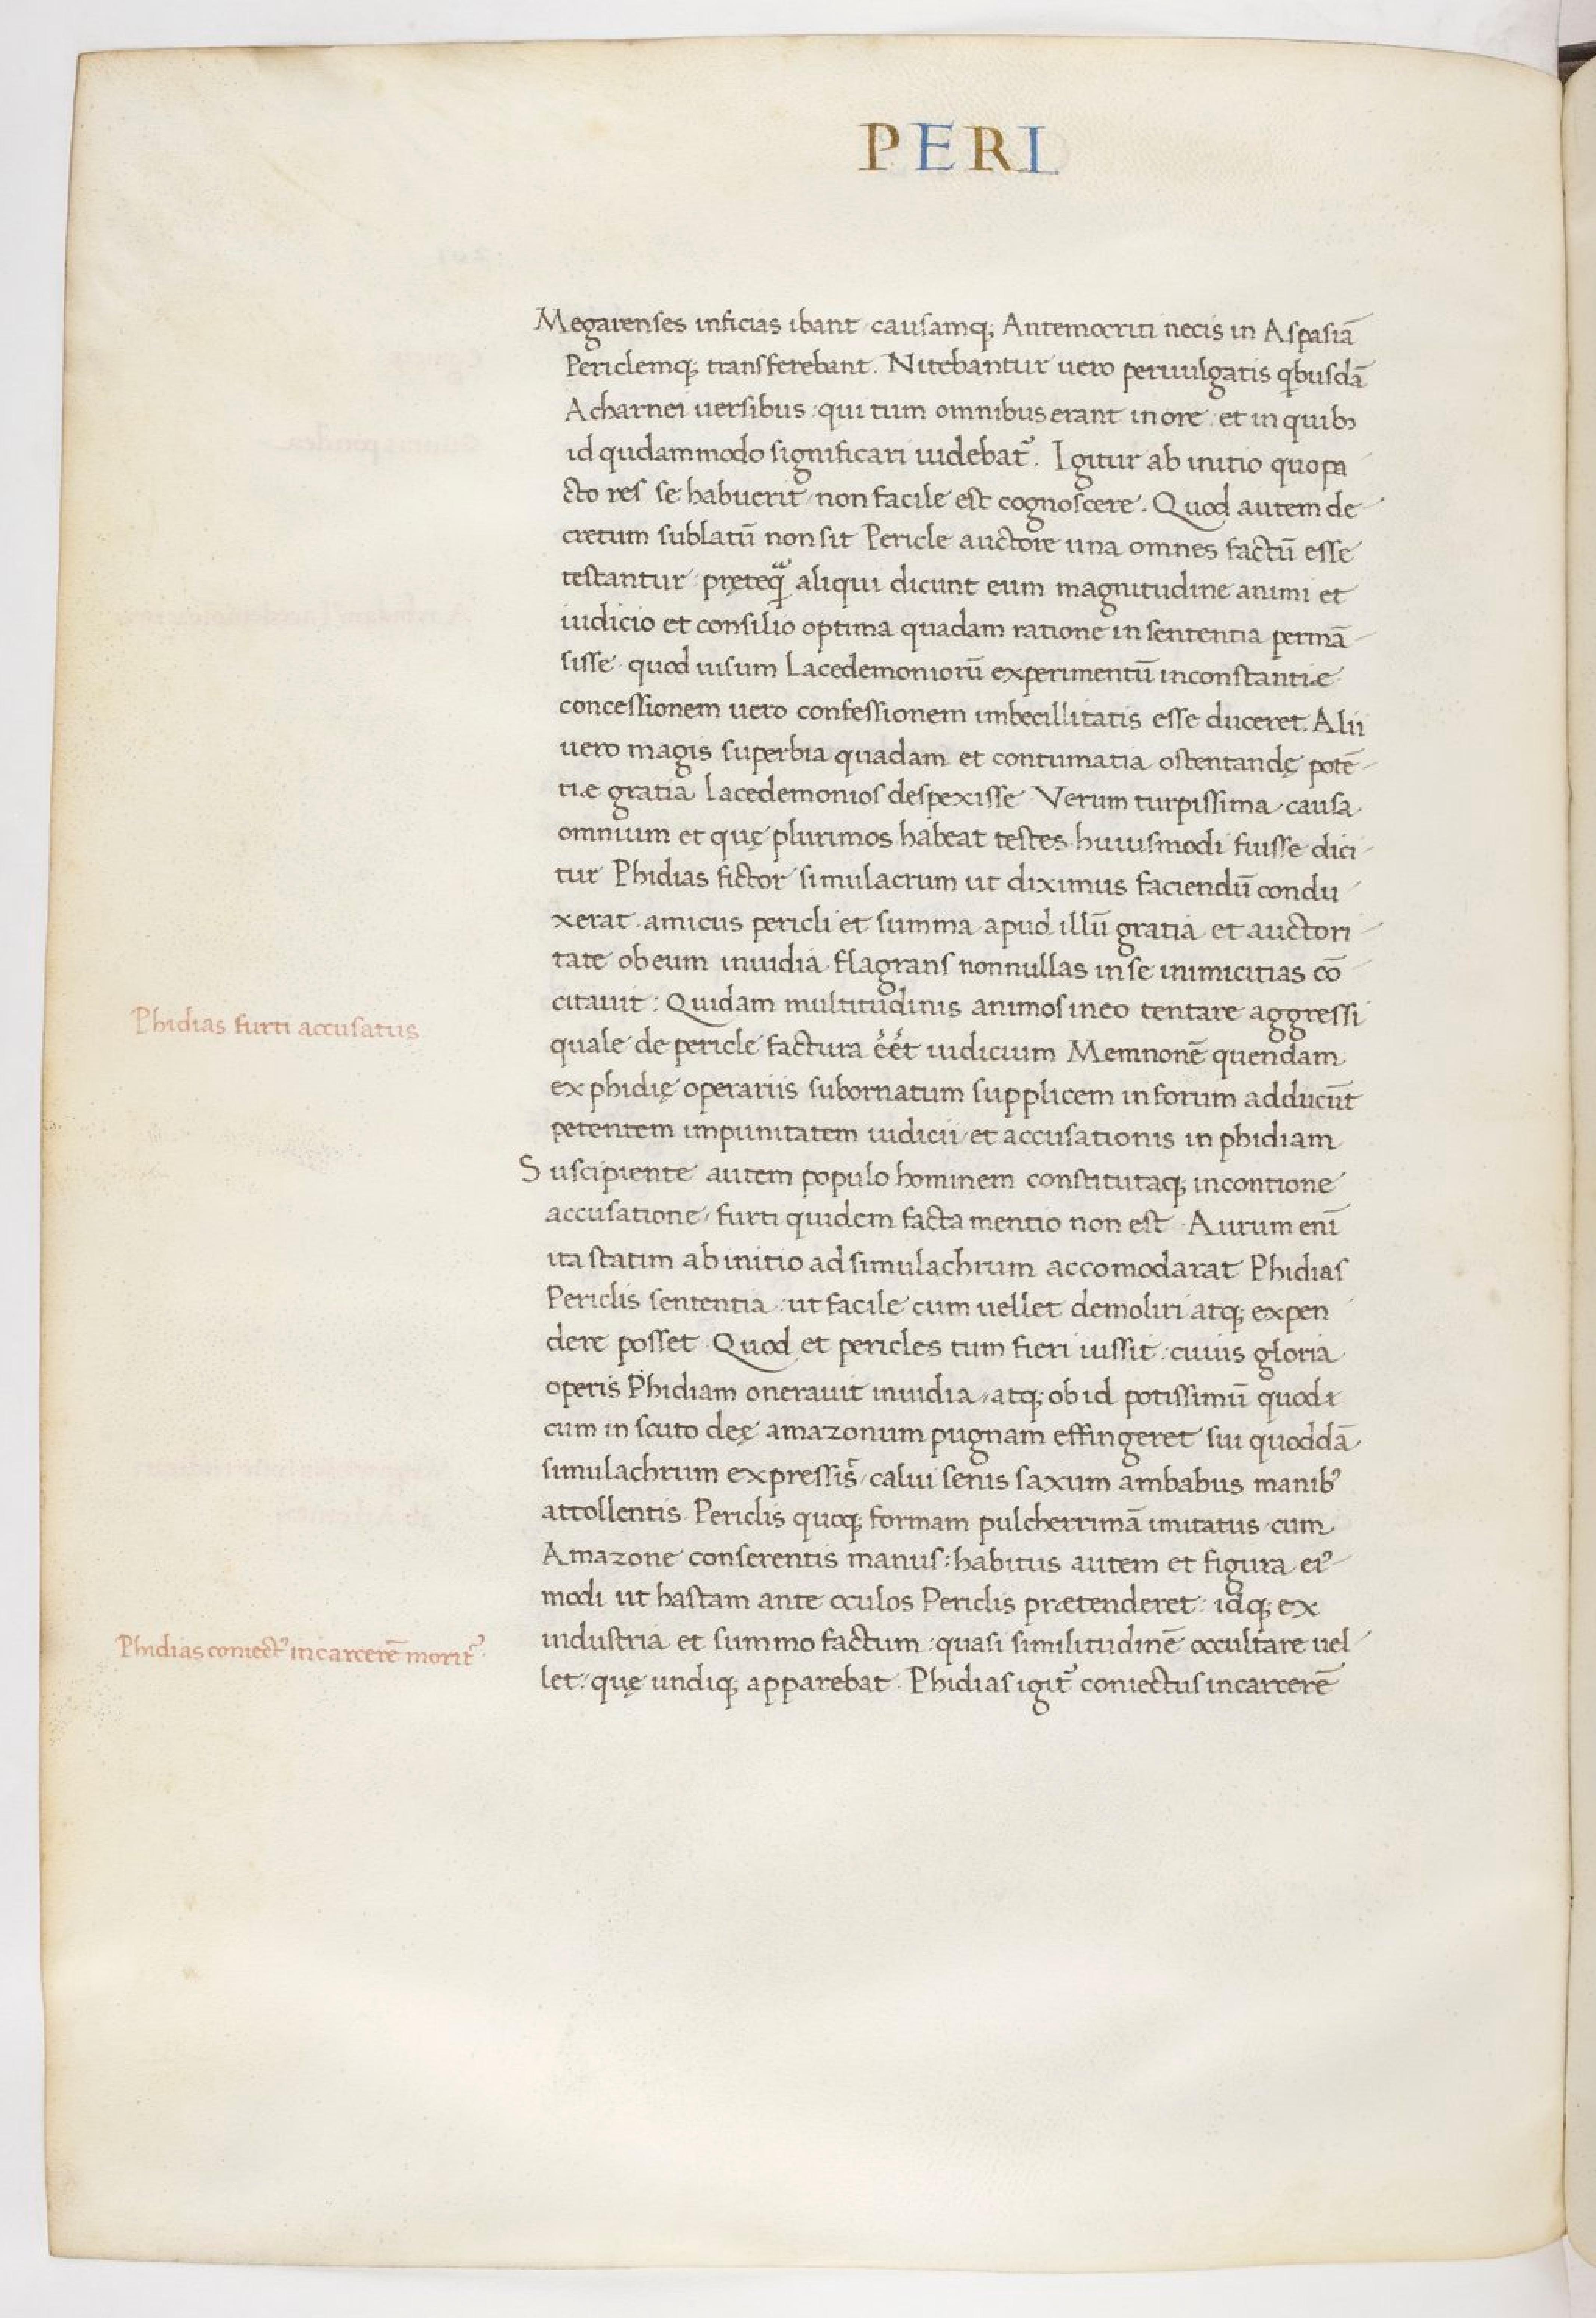 PERI
Megarenses inficias ibant causamq; Antemocriti necis in Aspasiā
Periclemq; transferebant. Nitebantur uero peruulgatis qbusdā
Acharnei uersibus: qui tum omnibus erant in ore: et in quibꝫ
id qudammodo significari uidebat̄. Igitur ab initio quo pa
cto res se habuerit non facile est cognoscere. Quod autem de
cretum sublatū non sit Pericle auctore una omnes factū esse
testantur: pręteq̃ aliqui dicunt eum magnitudine animi et
iudicio et consilio optima quadam ratione in sententia permā
sisse quod uisum Lacedemoniorū experimentū inconstantiæ
concessionem uero confessionem imbecillitatis esse duceret. Alii
uero magis superbia quadam et contumatia ostentandę potē
tiæ gratia Lacedemonios despexisse Verum turpissima causa
omnium et quę plurimos habeat testes huiusmodi fuisse dici
tur Phidias fictor simulacrum ut diximus faciendū condu
xerat amicus pericli et summa apud illū gratia et auctori
tate ob eum inuidia flagrans nonnullas in se inimicitias cō
citauit: Quidam multitudinis animos in eo tentare aggressi
Phidias furti accusatus
quale de pericle factura eēt iudicium Memnonē quendam
ex phidię operariis subornatum supplicem in forum adducūt
petentem impunitatem iudicii et accusationis in phidiam
Suscipiente autem populo hominem constitutaq; in contione
accusatione, furti quidem facta mentio non est. Aurum enī
ita statim ab initio ad simulachrum accomodarat Phidias
Periclis sententia: ut facile cum uellet demoliri atq; expen
dere posset Quod et pericles tum fieri iussit: cuius gloria
operis Phidiam onerauit inuidia, atq; ob id potissimū quod
cum in scuto deę amazonum pugnam effingeret sui quoddā
simulachrum expressis̄ calui senis saxum ambabus manibꝰ
attollentis Periclis quoq; formam pulcherrimā imitatus cum
Amazone conserentis manus: habitus autem et figura eiꝰ
modi ut hastam ante oculos Periclis prætenderet: idq; ex
industria et summo factum: quasi similitudinē occultare uel
Phidias coniectꝰ in carcerē morit̄
let: quę undiq; apparebat. Phidias igit̄ coniectus in carcerē